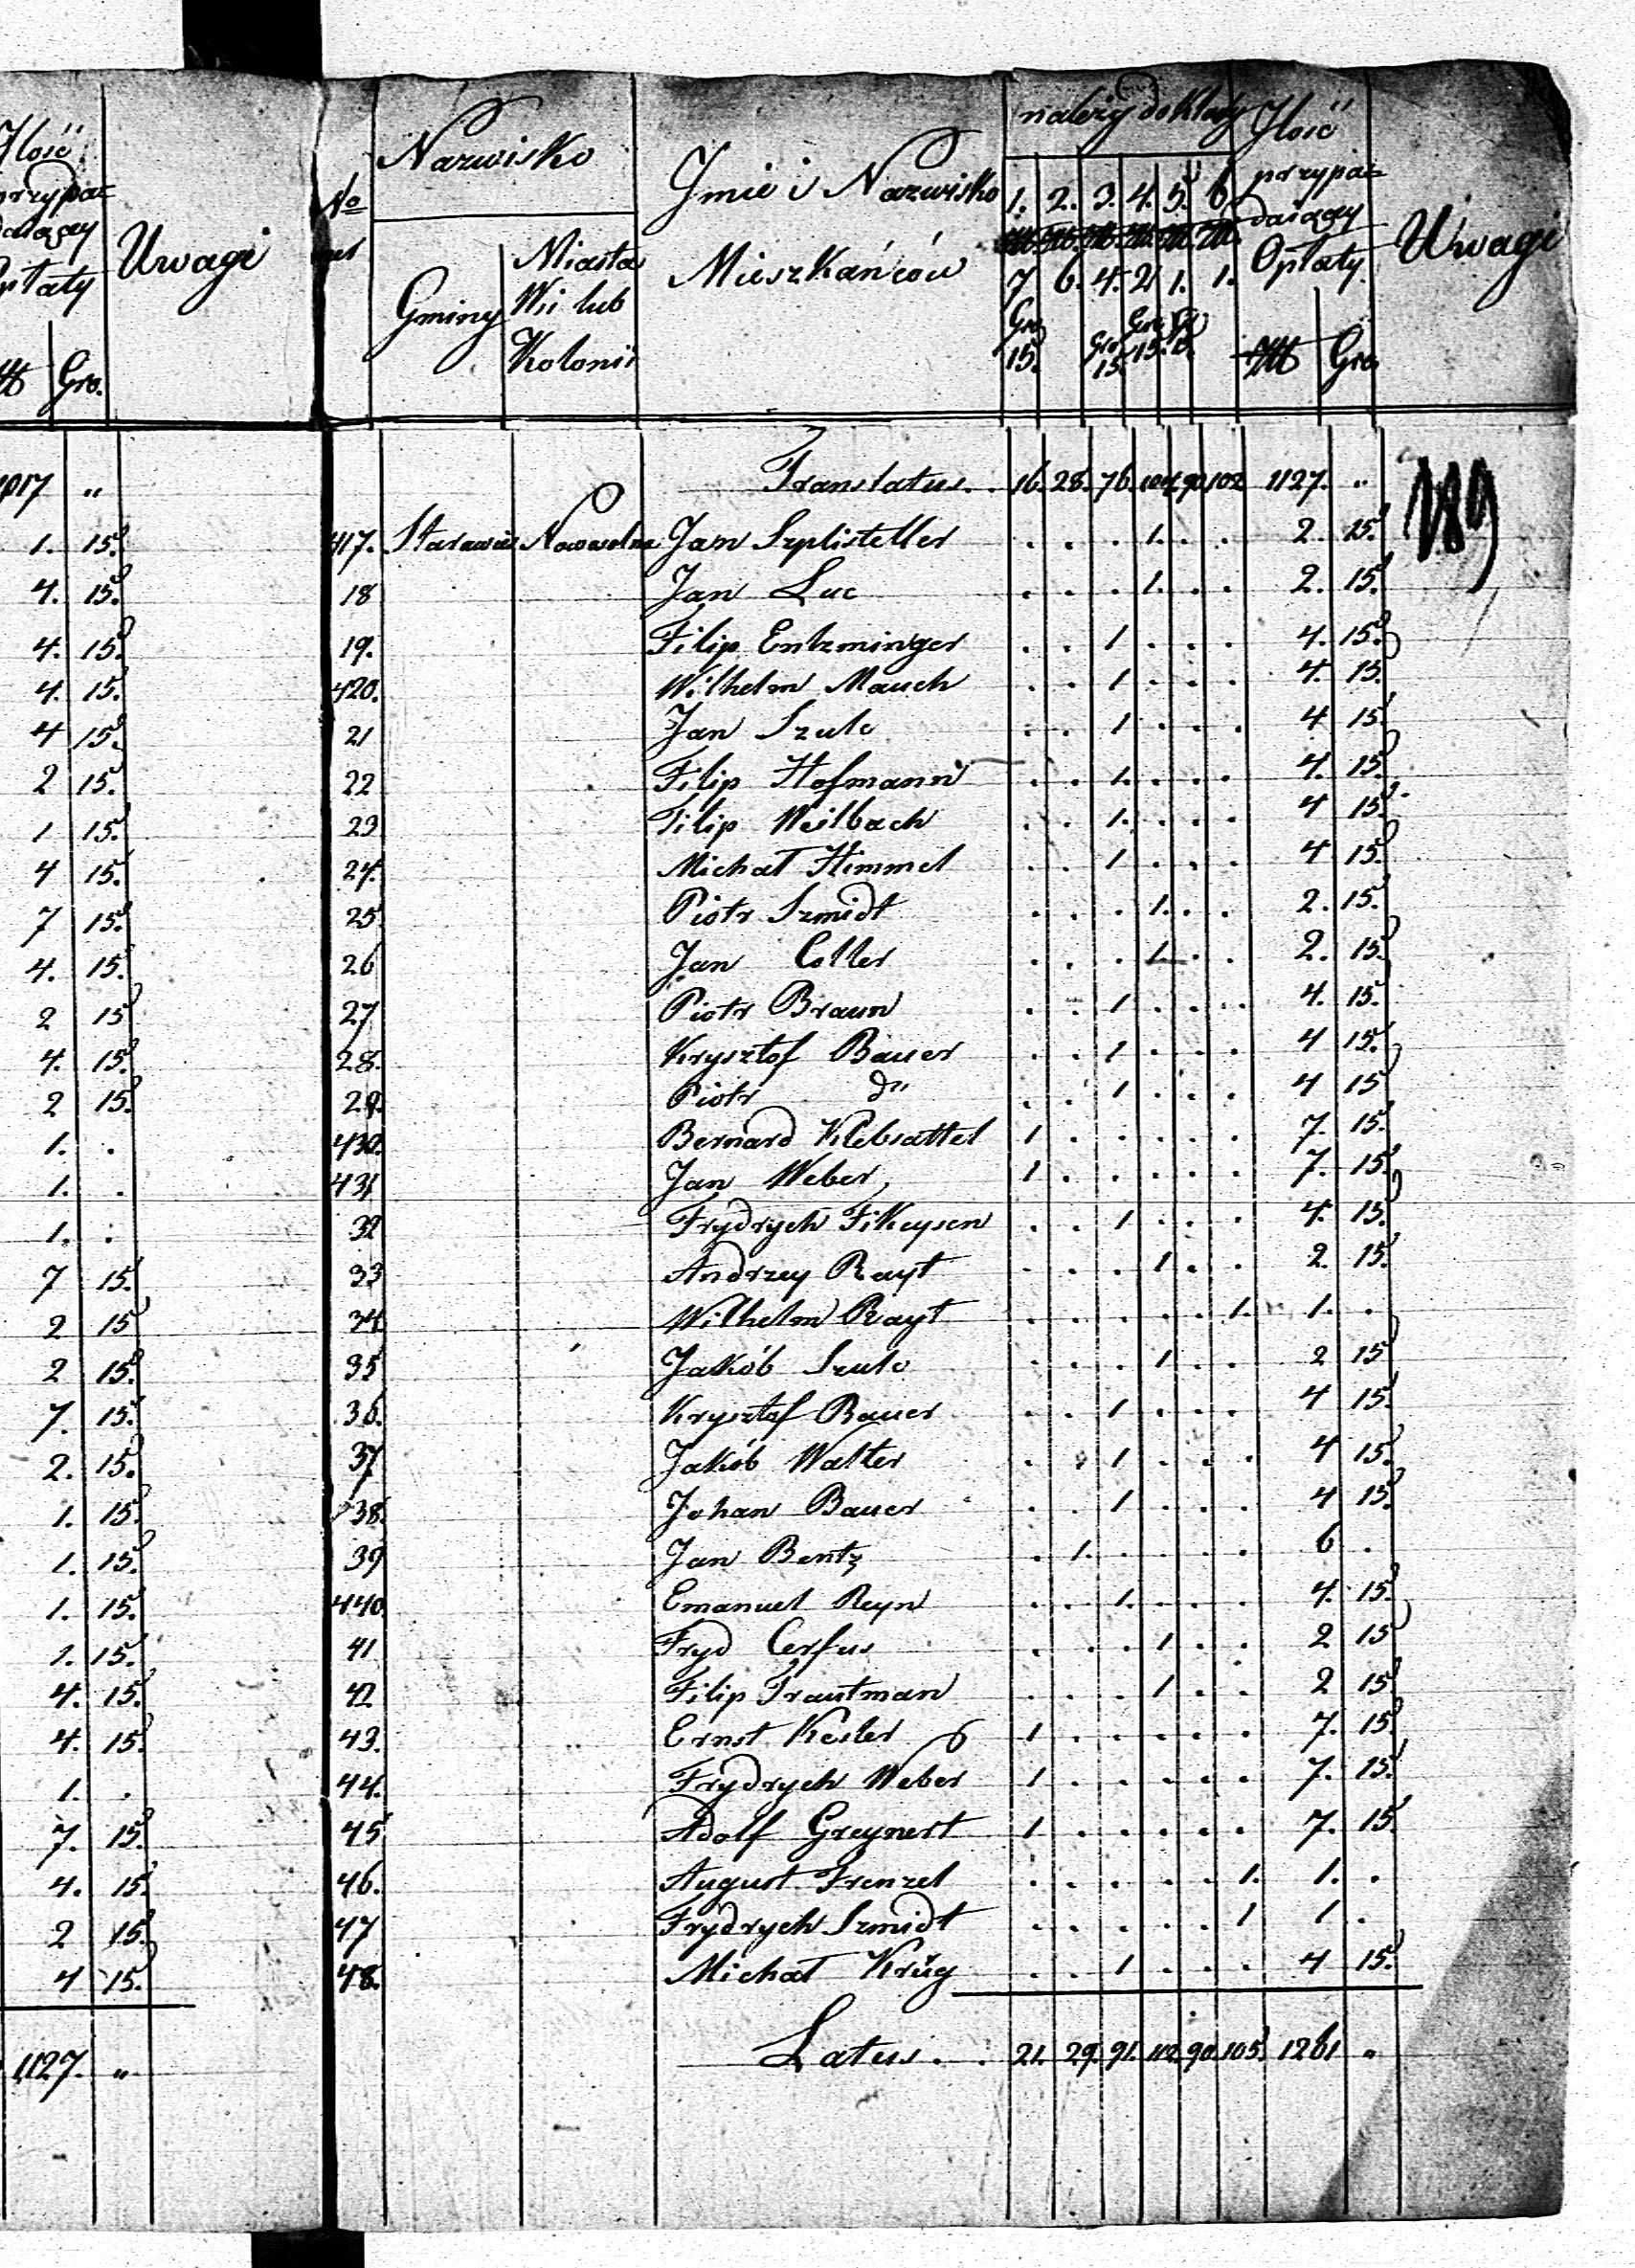 Ilość
przypa=
daiącey
Opłaty
Uwagi
Gro.
1017 "
1. 15.
4. 15.
4. 15.
4. 15.
4 15.
2 15.
1 15.
4 15.
7 15.
4. 15.
2 15
4. 15.
2 15.
1. .
1. .
1. .
7 15.
2 15
2 15.
7. 15.
2. 15.
1. 15.
1. 15.
1. 15.
1. 15.
4. 15.
4. 15.
1. .
7. 15.
4. 15.
2 15.
4 15.
1127. "
No
Nazwisko
Gminy
Miasta
Wsi lub
Kolonii
Jmie i Nazwisko
Mieszkańców
należy do Klassy
1. 2. 3. 4. 5. 6.
7 6. 4. 2 1. 1.
Gro 15. Gro 15. Gro 15.
Ilość
przypa=
daiącey
Opłaty
Gro
Uwagi
189
Translatus. . 16. 28. 76. 104. 90. 102 1127. "
417. Starawieś Nowosolna Jan Szplisteller . . . 1. . . 2. 15.
18 Jan Luc . . . 1. . . 2. 15.
19. Filip Entzminger . . 1 . . . 4. 15.
420. Wilhelm Mauch . . 1 . . . 4. 15.
21 Jan Szulc . . 1 . . . 4 15.
22 Filip Hofmann . . 1. . . . 4. 15.
23 Filip Weilbach . . 1. . . . 4 15.
24. Michał Himmel . . 1 . . . 4 15.
25 Piotr Szmidt . . . 1. . . 2. 15.
26 Jan Coller . . . 1. . . 2. 15.
27 Piotr Braun . . 1 . . . 4. 15.
28. Krysztof Bauer . . 1 . . . 4 15.
29. Piotr do . . 1 . . . 4 15
430. Bernard Klebsattel 1 . . . . . 7. 15.
431 Jan Weber 1 . . . . . 7. 15.
32 Frydrych Fikeysen . . 1 . . . 4. 15.
33 Andrzey Rayt . . . 1 . . 2. 15.
34. Wilhelm Rayt . . . . . 1. 1. .
35 Jakób Szulc . . . 1 . . 2 15
36. Krysztof Bauer . . 1 . . . 4 15.
37 Jakób Walter . . 1 . . . 4 15.
38. Johan Bauer . . 1 . . . 4 15.
39 Jan Bentz . 1. . . . . 6 .
440. Emanuel Reyn . . 1. . . . 4. 15.
41 Fryd Cerfus . . . 1 . . 2 15
42 Filip Trautman . . . 1 . . 2 15
43. Ernst Kesler 1 . . . . . 7. 15
44. Frydrych Weber 1 . . . . . 7. 15.
45 Adolf Greynert 1 . . . . . 7. 15.
46. August Frenzel . . . . . 1. 1. .
47 Frydrych Szmidt . . . . . 1 1 .
48. Michał Krüg . . 1 . . . 4 15.
Latus. . 21. 29. 91. 112. 90. 105. 1261 "